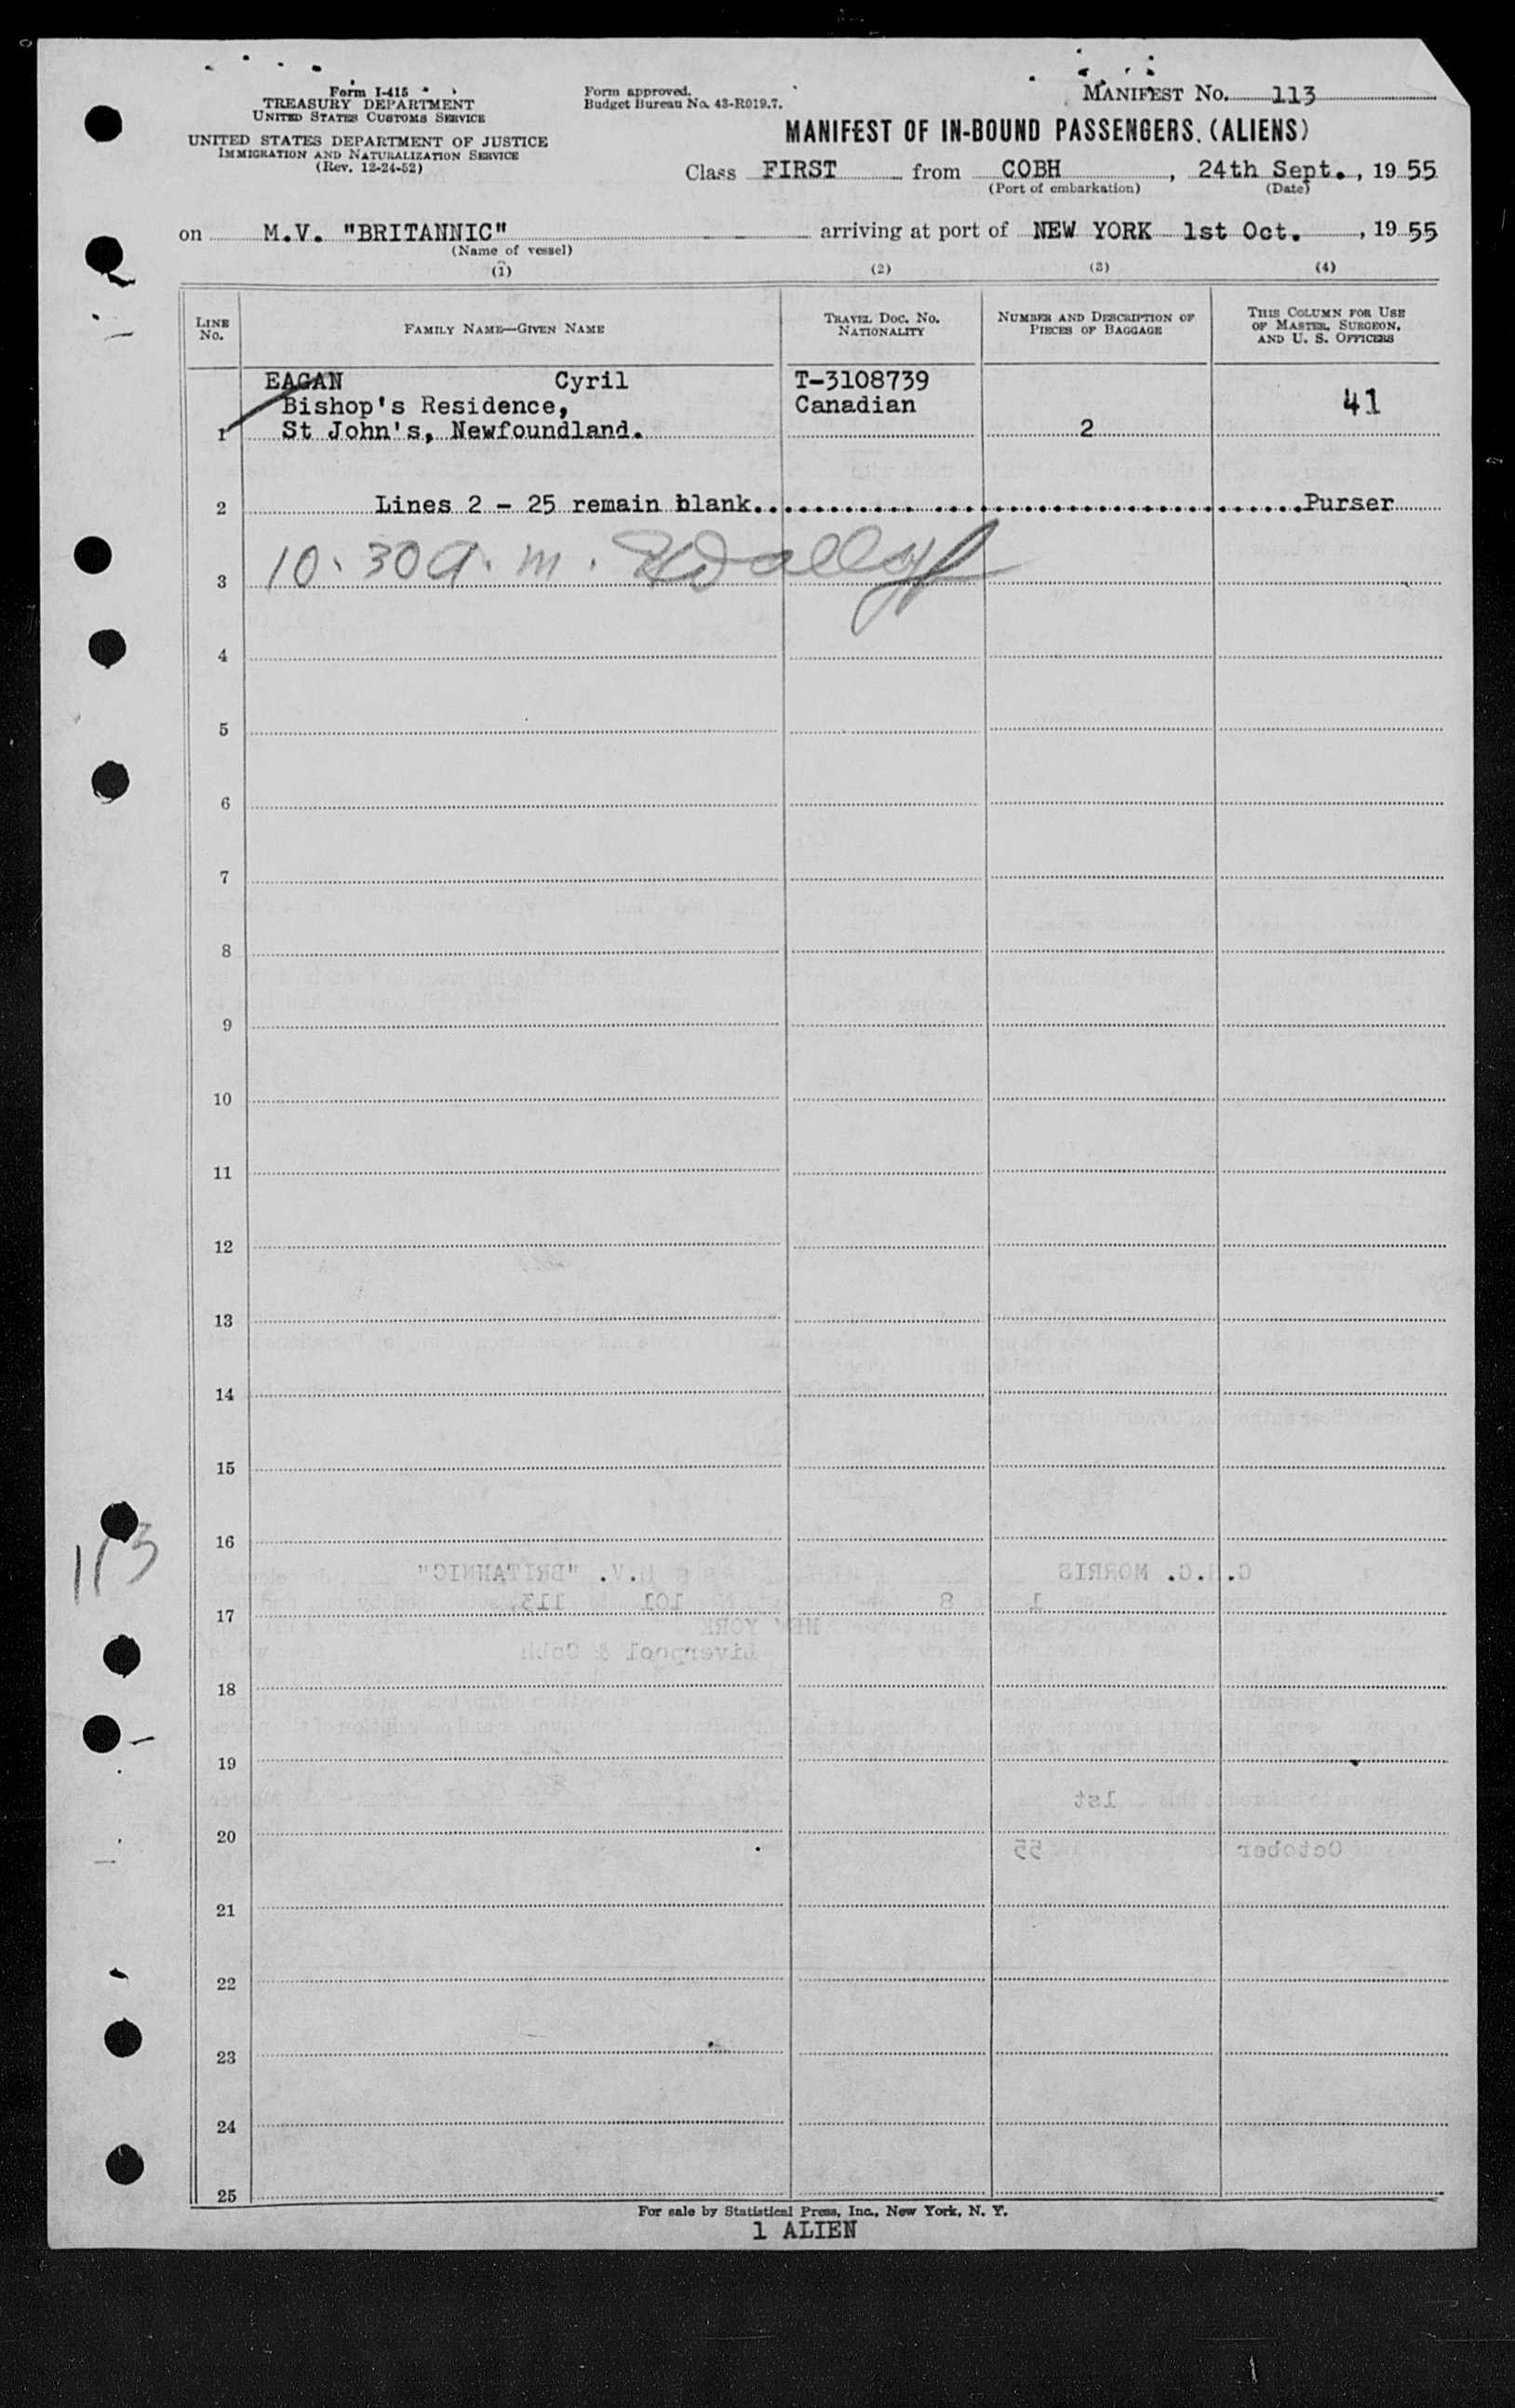 Form I-415
TREASURY DEPARTMENT
UNITED STATES CUSTOMS SERVICE
UNITED STATES DEPARTMENT OF JUSTICE
IMMIGRATION AND NATURALIZATION SERVICE
(Rev. 12-24-52)
Form approved.
Budget Bureau No. 43-R019.7.
MANIFEST No. 113
MANIFEST OF IN-BOUND PASSENGERS (ALIENS)
Class FIRST from COBH, 24th Sept., 1955
(Port of embarkation) (Date)
on M.V. "BRITANNIC" arriving at port of NEW YORK 1st Oct., 1955
(Name of vessel)
(1) (2) (3) (4)
LINE No. FAMILY NAME—GIVEN NAME TRAVEL DOC. No. NATIONALITY NUMBER AND DESCRIPTION OF PIECES OF BAGGAGE THIS COLUMN FOR USE OF MASTER, SURGEON, AND U. S. OFFICERS
EAGAN Cyril T-3108739
Bishop's Residence, Canadian 41
1 St John's, Newfoundland. 2
2 Lines 2 - 25 remain blank. Purser
3 10.30 a.m.
4
5
6
7
8
9
10
11
12
13
14
15
16
113
G. MORRIS M.V. "BRITANNIC"
1 8 101 113
17
NEW YORK
Liverpool & Cobh
18
19
1st
20
October 55
21
22
23
24
25
For sale by Statistical Press, Inc., New York, N. Y.
1 ALIEN